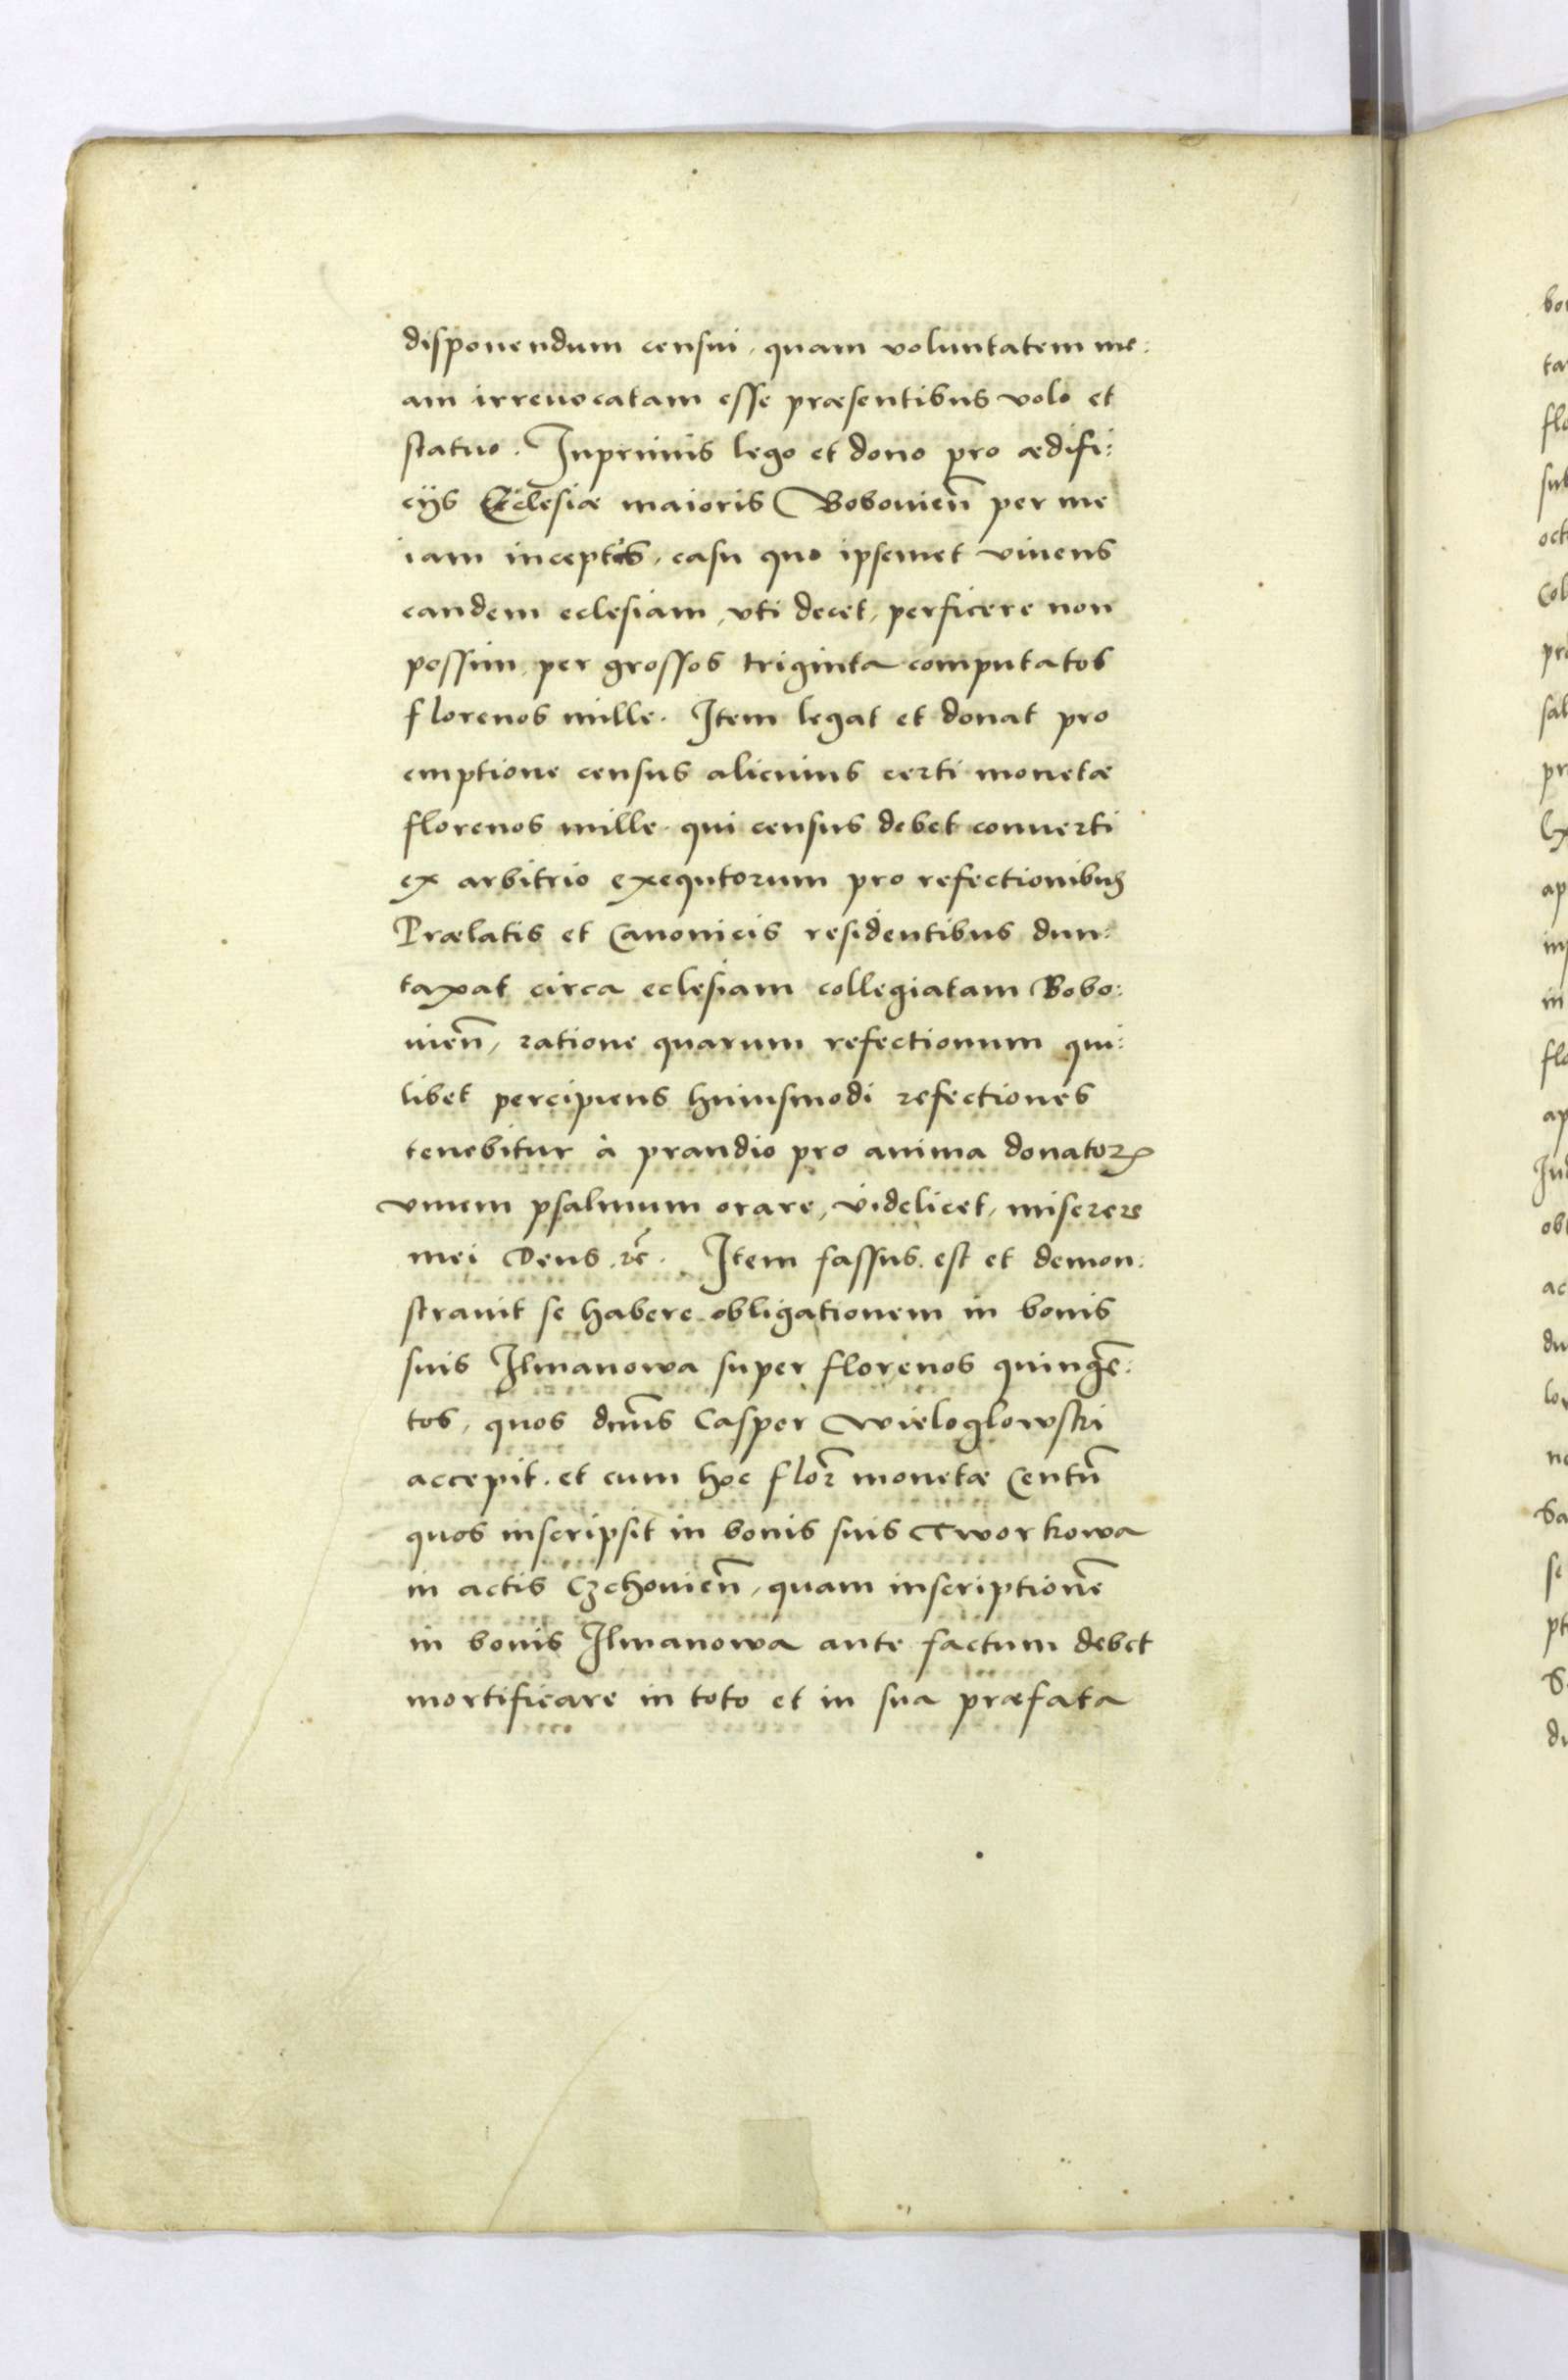 disponendum censui, quam voluntatem me:
am irreuocatam esse præsentibus volo et
statuo. Inprimis lego et dono pro ædifi:
cijs Ecclesiæ maioris Bobouien̄ per me
iam inceptis, casu quo ipsemet viuens
eandem eclesiam, vti decet, perficere non
possim, per grossos triginta computatos
florenos mille. Item legat et donat pro
emptione census alicuius certi monetæ
florenos mille. qui census debet conuerti
ex arbitrio exequtorum pro refectionibus
Prælatis et Canonicis residentibus dun:
taxat circa eclesiam collegiatam Bobo:
uien̄, ratione quarum refectionum qui:
libet percipiens huiusmodi refectiones
tenebitur à prandio pro anima donatorꝝ
vnum psalmum orare, videlicet, miserere
mei Deus. ꝛc̄. Item fassus est et demon:
strauit se habere obligationem in bonis
suis Ilmanowa super florenos quingē:
tos, quos dn̄us Casper Wieloglowski
accepit. et cum hoc flor̄ monetæ Centū
quos inscripsit in bonis suis Tworkowa
in actis Czchouien̄, quam inscriptionē
in bonis Ilmanowa ante factum debet
mortificare in toto et in sua præfata